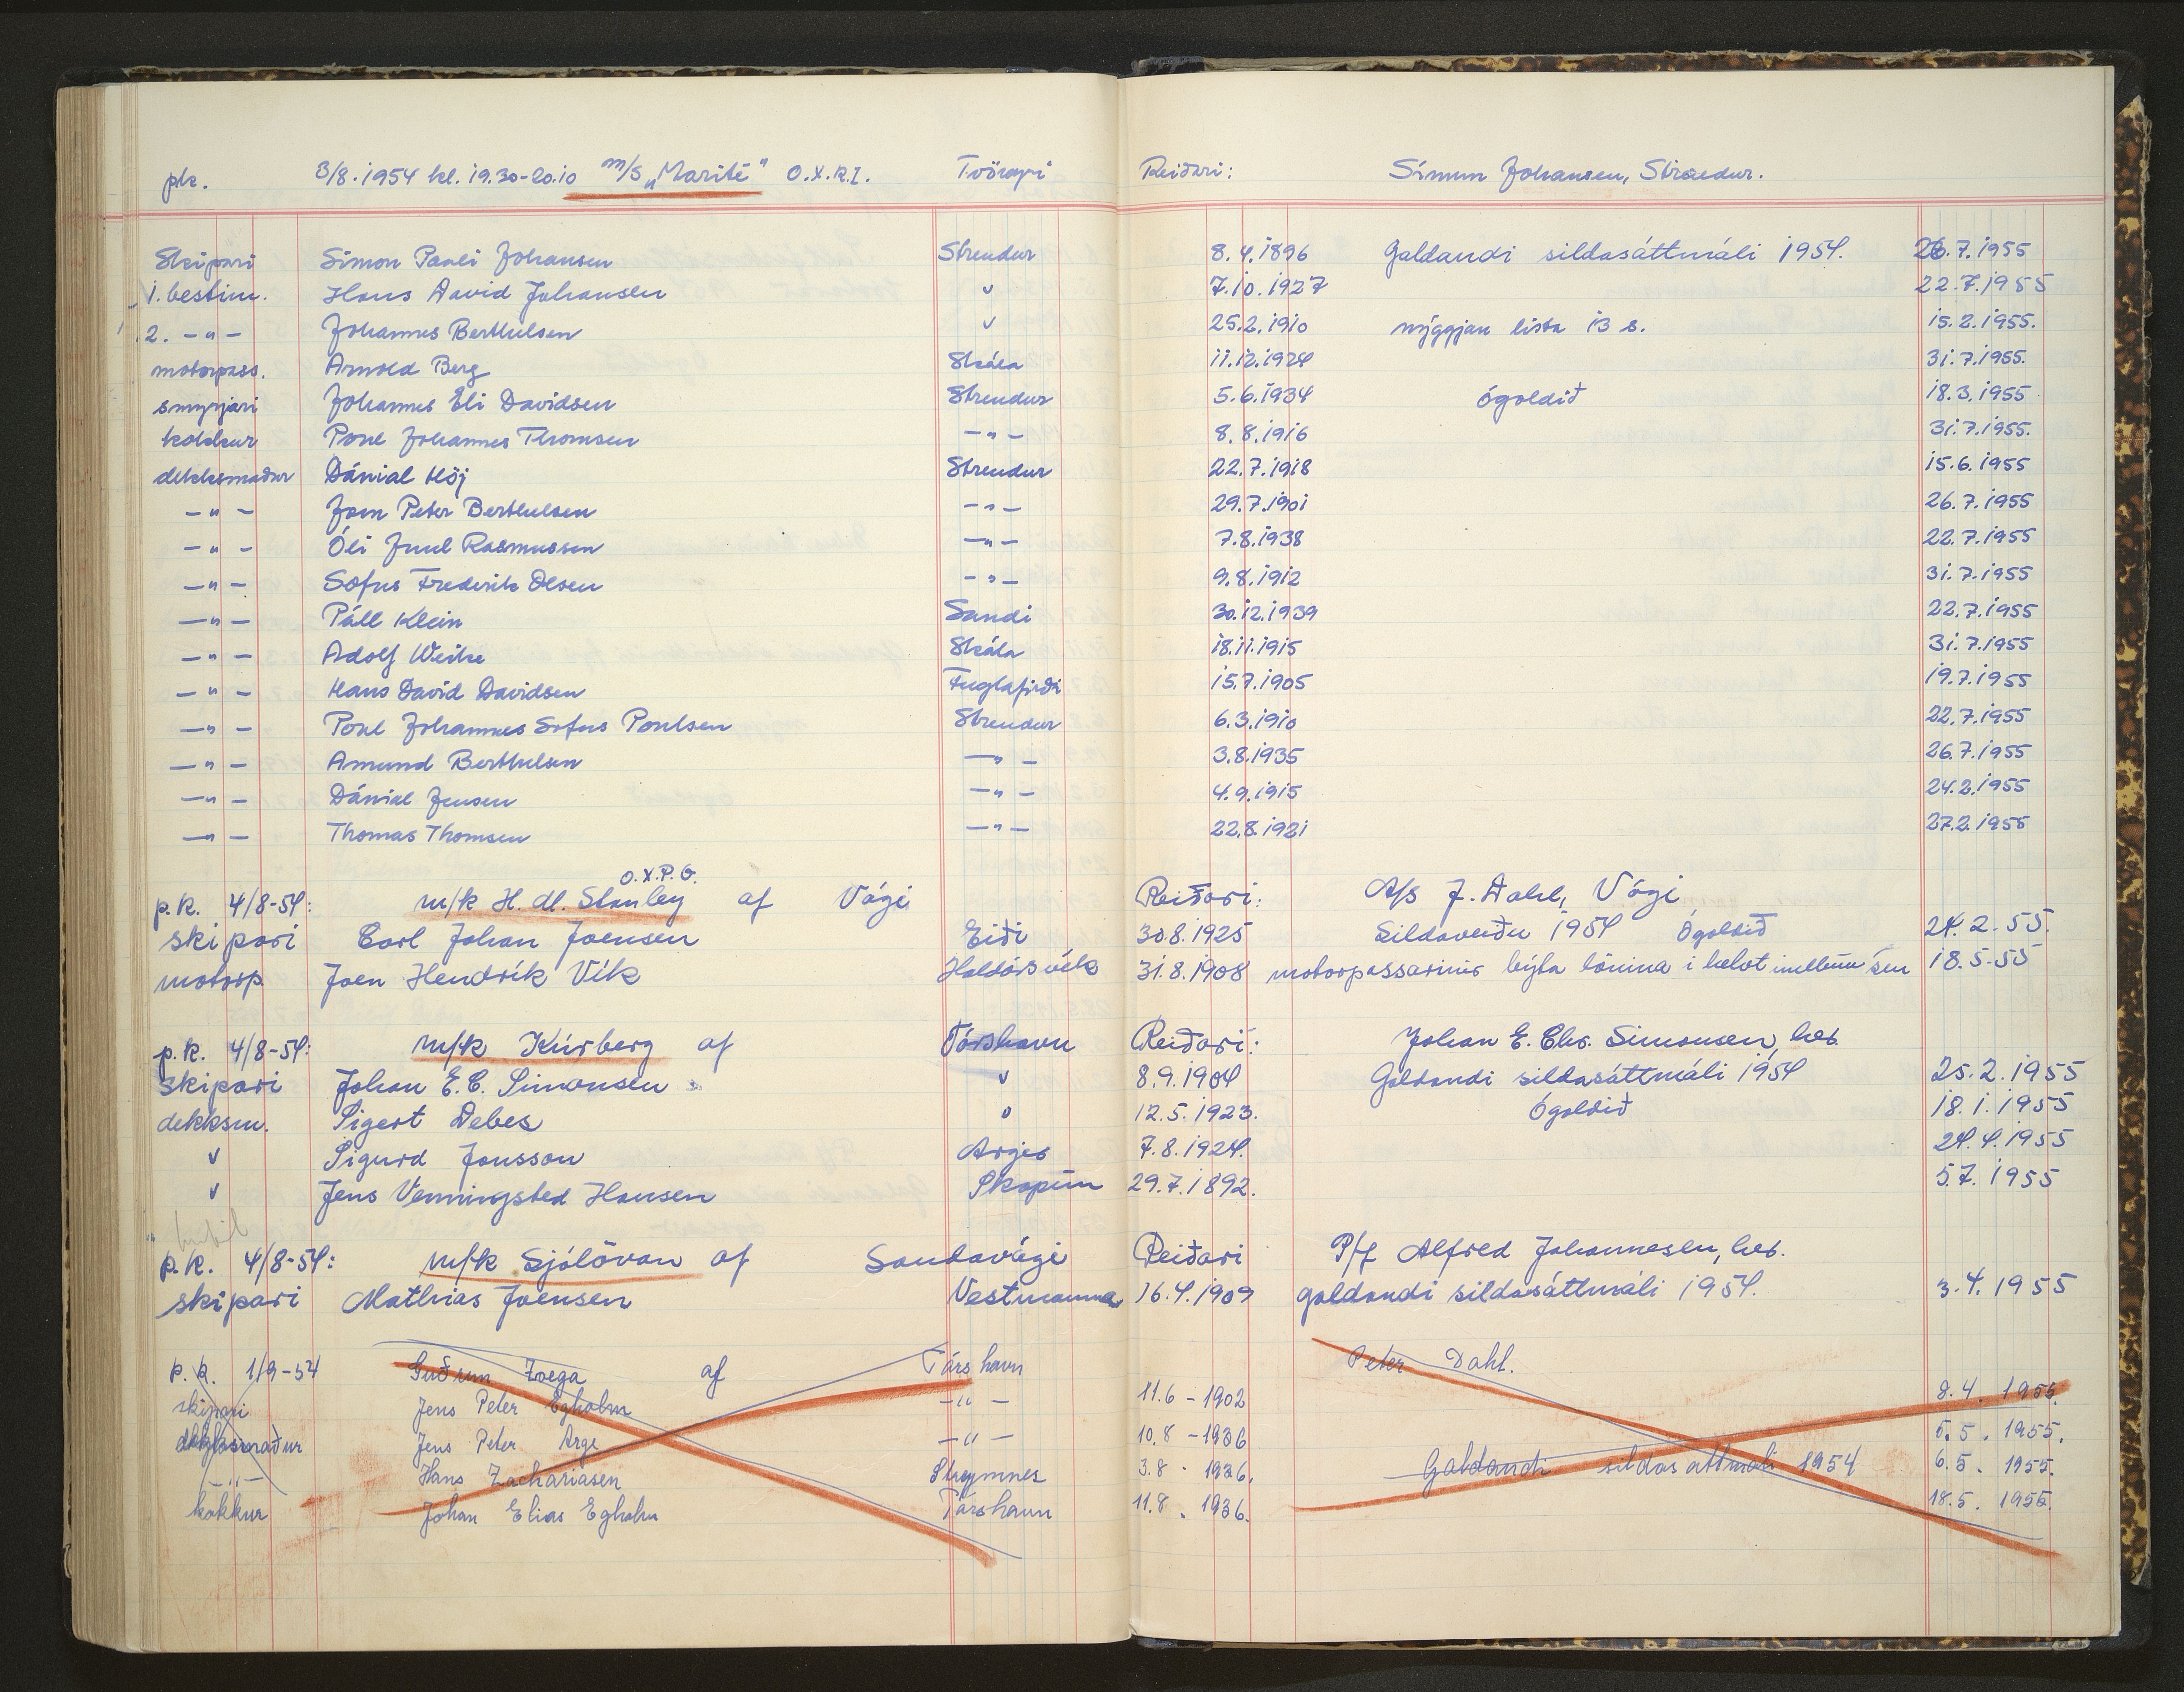 pk. 3/8.1954 kl. 19.30-20.10 m/s „Marite" O.X.R.I. Tvöroyri Reiðari: Símun Johansen, Strendur.
Skipari Simon Pauli Johansen Strendur 8.4.1896 Galdandi sildasáttmáli 1954. 26.7.1955
1. bestm. Hans David Johansen v 7.10.1927 22.7.1955
2. -"- Johannes Berthelsen v 25.2.1910 nýggjan lista 13 s. 15.2.1955.
motorpass. Arnold Berg Skála 11.12.1924 31.7.1955.
smyrjari Johannes Eli Davidsen Strendur 5.6.1934 ógoldið 18.3.1955
kokkur Poul Johannes Thomsen -"- 8.8.1916 31.7.1955.
dekksmaður Dánial Höj Strendur 22.7.1918 15.6.1955
-"- Joen Peter Berthelsen -"- 29.7.1901 26.7.1955
-"- Óli Juul Rasmussen -"- 7.8.1938 22.7.1955
-"- Sofus Frederik Olsen -"- 9.8.1912 31.7.1955
-"- Páll Klein Sandi 30.12.1939 22.7.1955
-"- Adolf Weihe Skála 18.11.1915 31.7.1955
-"- Hans David Davidsen Fuglafirði 15.7.1905 19.7.1955
-"- Poul Johannes Sofus Poulsen Strendur 6.3.1910 22.7.1955
-"- Amund Berthelsen -"- 3.8.1935 26.7.1955
-"- Dánial Jensen -"- 4.9.1915 24.2.1955
-"- Thomas Thomsen -"- 22.8.1921 27.2.1955
O.X.P.G.
p.k. 4/8-54: m/k H. M. Stanley af Vági Reiðari: A/s J. Dahl, Vági
skipari Carl Johan Joensen Eiði 30.8.1925 Sildaveiðu 1954 Ógoldið 24.2.55.
motorp. Joen Hendrik Vik Haldórsvík 31.8.1908 motorpassarinir býta lönina i helvt inellum sen 18.5.55
p.k. 4/8-54: m/k Kúrberg af Tórshavn Reiðari: Johan E. Chr. Simonsen, hes.
skipari Johan E. C. Simonsen v 8.9.1904 Galdandi sildasáttmáli 1954 25.2.1955
dekksm. Sigert Debes v 12.5.1923. Ógoldið 18.1.1955
v Sigurd Jonsson Argir 7.8.1924. 24.4.1955
v Jens Venningsted Hansen Skopun 29.7.1892. 5.7.1955
p.k. 4/8-54: m/k Sjólövan af Sandavági Reiðari P/f Alfred Johannesen, hes.
skipari Mathias Joensen Vestmanna 16.4.1909 galdandi sildasáttmáli 1954. 3.4.1955
p.k. 1/9-54 Guðrun Zoega af Tórshavn Peter Dahl.
skipari Jens Peter Egholm -"- 11.6-1902 8.4.1955.
dekksmaður Jens Peter Arge -"- 10.8-1936 5.5.1955.
-"- Hans Zachariasen Streymnes 3.8.1936. Galdandi sildasattmali 1954 6.5.1955.
kokkur Johan Elias Egholm Tórshavn 11.8.1936. 18.5.1955.